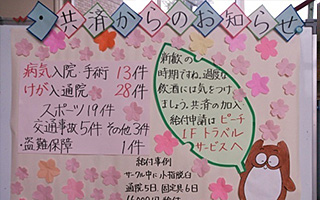 共済からのお知らせ
病気入院・手術 13件
けが入通院 28件
スポーツ19件
交通事故5件 その他3件
・盗難保障 1件
新歓の
時期ですね。過度な
飲酒には気をつけ
ましょう。共済の加入・
給付申請はピーチ
1Fトラベル
サービスへ
給付事例
サークル中に小指脱臼
通院5日、固定具6日